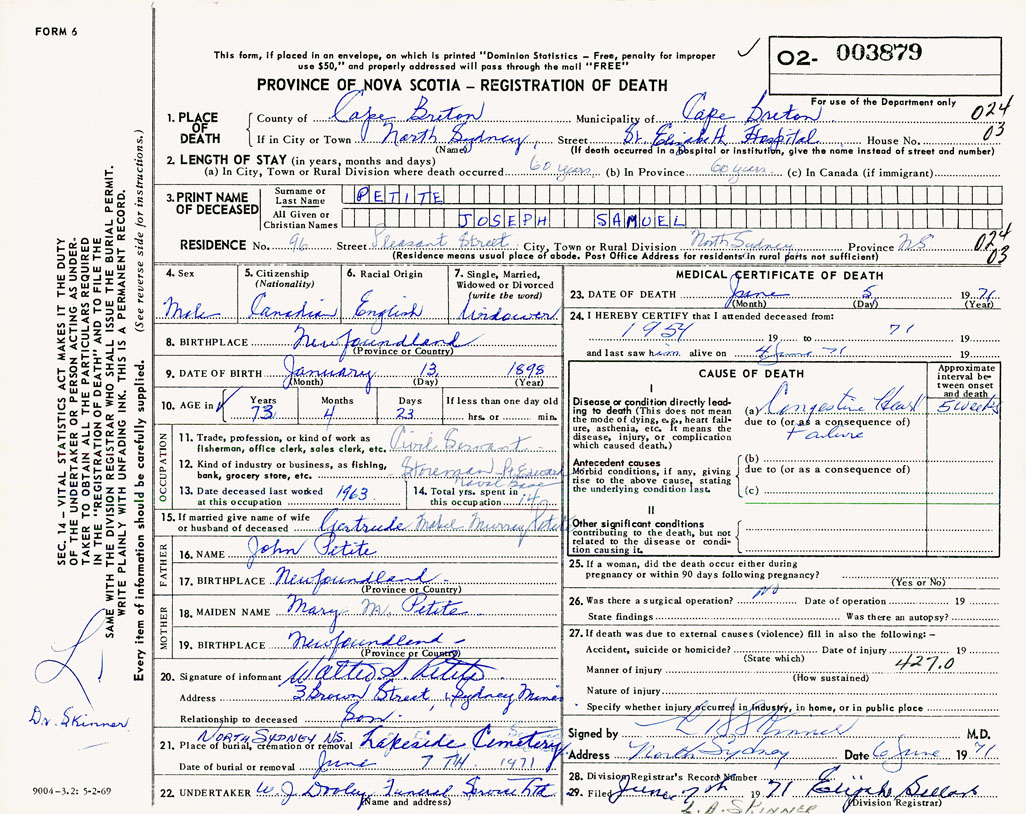 FORM 6
This form, if placed in an envelope, on which is printed "Dominion Statistics – Free, penalty for improper
use $50," and properly addressed will pass through the mail "FREE"
02- 003879
PROVINCE OF NOVA SCOTIA – REGISTRATION OF DEATH
For use of the Department only
1. PLACE OF DEATH
County of Cape Breton Municipality of Cape Breton 024
If in City or Town North Sydney, Street St. Elizabeth Hospital House No. 03
(Name) (If death occurred in a hospital or institution, give the name instead of street and number)
2. LENGTH OF STAY (in years, months and days)
(a) In City, Town or Rural Division where death occurred 60 years (b) In Province 60 years (c) In Canada (if immigrant)
3. PRINT NAME OF DECEASED
Surname or Last Name PETITE
All Given or Christian Names JOSEPH SAMUEL
RESIDENCE No. 96 Street Pleasant Street City, Town or Rural Division North Sydney Province NS 024
(Residence means usual place of abode. Post Office Address for residents in rural parts not sufficient) 03
4. Sex
Male
5. Citizenship
(Nationality)
Canadian
6. Racial Origin
English
7. Single, Married,
Widowed or Divorced
(write the word)
Widower
8. BIRTHPLACE Newfoundland
(Province or Country)
9. DATE OF BIRTH January 13 1898
(Month) (Day) (Year)
10. AGE in Years Months Days If less than one day old
73 4 23 hrs. or min.
OCCUPATION
11. Trade, profession, or kind of work as
fisherman, office clerk, sales clerk, etc. Civil Servant
12. Kind of industry or business, as fishing,
bank, grocery store, etc. Storeman Naval Base
13. Date deceased last worked
at this occupation 1963
14. Total yrs. spent in
this occupation 14
15. If married give name of wife
or husband of deceased Gertrude Mabel Murray Petite
FATHER
16. NAME John Petite
17. BIRTHPLACE Newfoundland
(Province or Country)
MOTHER
18. MAIDEN NAME Mary M. Petite
19. BIRTHPLACE Newfoundland
(Province or Country)
20. Signature of informant Walter S. Petite
Address 3 Brown Street, Sydney Mines
Relationship to deceased Son
NORTH SYDNEY NS.
21. Place of burial, cremation or removal Lakeside Cemetery
Date of burial or removal June 7TH 1971
22. UNDERTAKER W. J. Dooley Funeral Service Ltd
(Name and address)
MEDICAL CERTIFICATE OF DEATH
23. DATE OF DEATH June 5 1971
(Month) (Day) (Year)
24. I HEREBY CERTIFY that I attended deceased from:
1954 19 to 71 19
and last saw him alive on 4 June 71 19
CAUSE OF DEATH
Approximate
interval be-
tween onset
and death
I
Disease or condition directly lead-
ing to death (This does not mean
the mode of dying, e.g., heart fail-
ure, asthenia, etc. It means the
disease, injury, or complication
which caused death.)
(a) Congestive Heart 5 weeks
due to (or as a consequence of)
Failure
Antecedent causes
Morbid conditions, if any, giving
rise to the above cause, stating
the underlying condition last.
(b)
due to (or as a consequence of)
(c)
II
Other significant conditions
contributing to the death, but not
related to the disease or condi-
tion causing it.
25. If a woman, did the death occur either during
pregnancy or within 90 days following pregnancy?
(Yes or No)
26. Was there a surgical operation? No Date of operation 19
State findings Was there an autopsy?
27. If death was due to external causes (violence) fill in also the following: –
Accident, suicide or homicide? Date of injury 19
(State which) 427.0
Manner of injury
(How sustained)
Nature of injury
Specify whether injury occurred in industry, in home, or in public place
Signed by L A Skinner M.D.
Address North Sydney Date 6 June 1971
28. Division Registrar's Record Number
29. Filed June 7th 1971
(Division Registrar)
L. A. SKINNER
SEC. 14 – VITAL STATISTICS ACT MAKES IT THE DUTY
OF THE UNDERTAKER OR PERSON ACTING AS UNDER-
TAKER TO OBTAIN ALL THE PARTICULARS REQUIRED
IN THE "REGISTRATION OF DEATH" AND TO FILE THE
SAME WITH THE DIVISION REGISTRAR WHO SHALL ISSUE THE BURIAL PERMIT.
WRITE PLAINLY WITH UNFADING INK. THIS IS A PERMANENT RECORD.
Every item of information should be carefully supplied. (See reverse side for instructions.)
Dr. Skinner
9004-3.2: 5-2-69